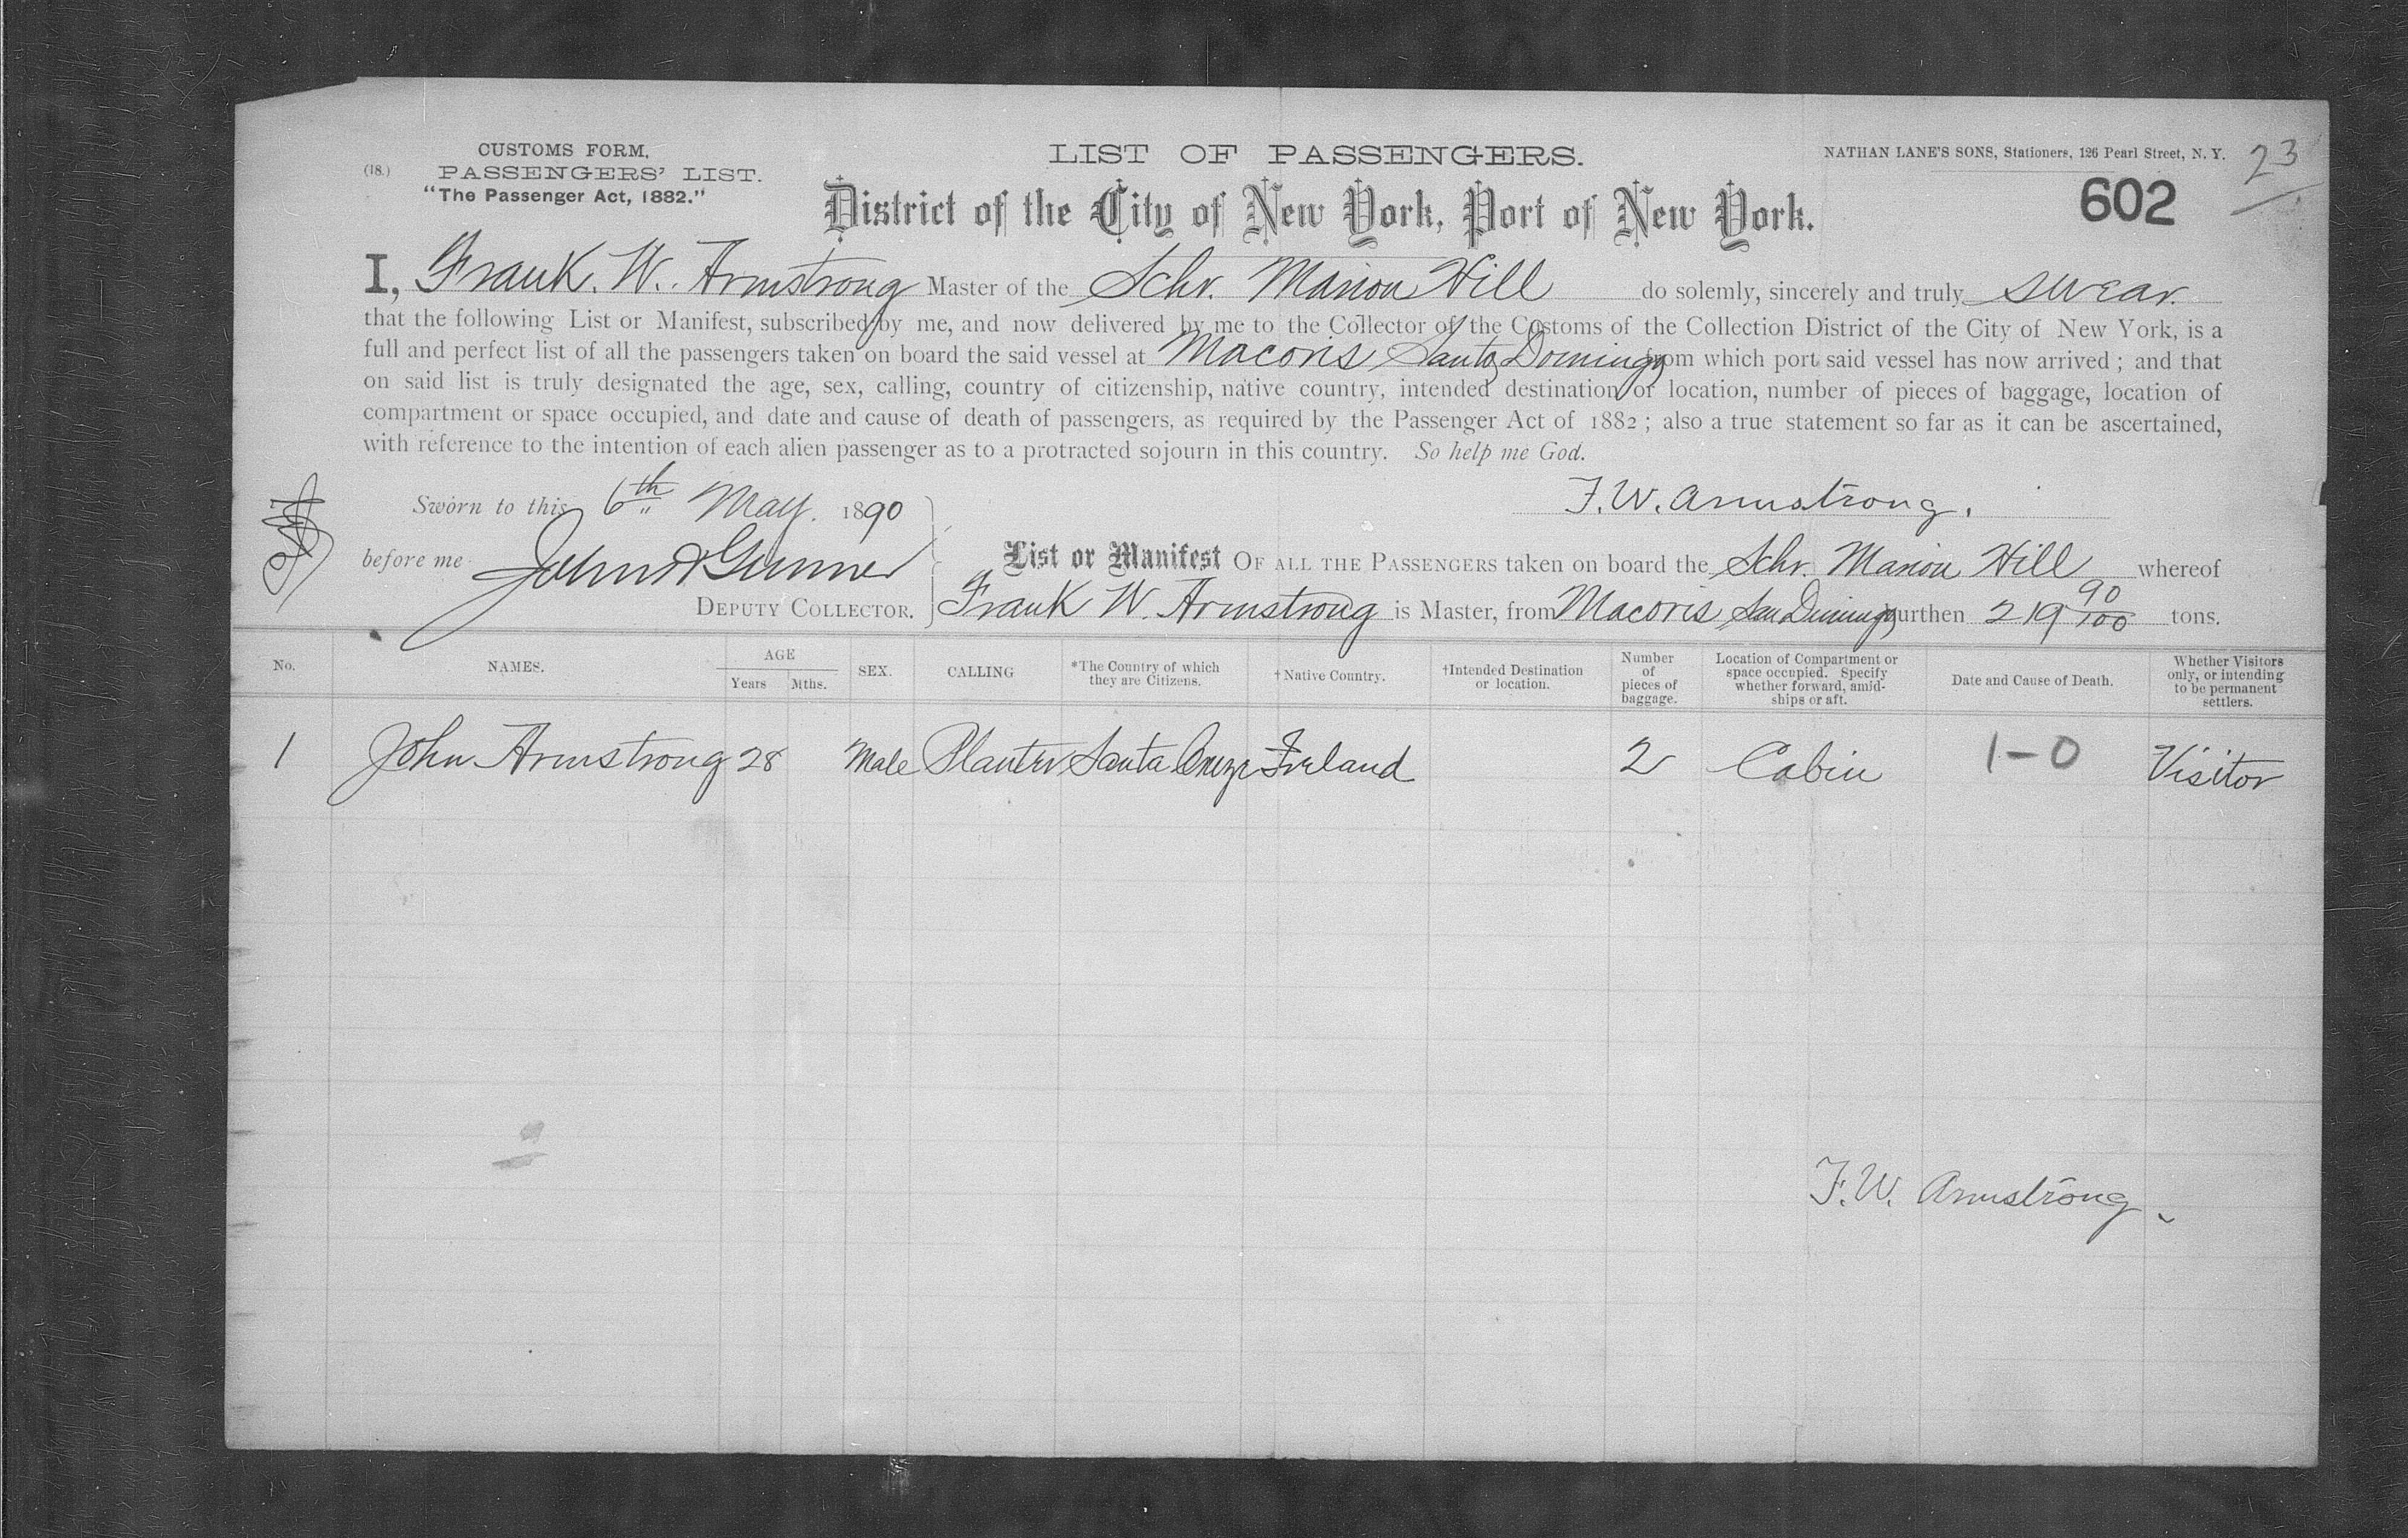 CUSTOMS FORM,
(18.) PASSENGERS' LIST.
"The Passenger Act, 1882."
LIST OF PASSENGERS.
NATHAN LANE'S SONS, Stationers, 126 Pearl Street, N. Y.
23
602
District of the City of New York, Port of New York.
I, Frank. W. Armstrong Master of the Schr. Marion Hill do solemly, sincerely and truly swear.
that the following List or Manifest, subscribed by me, and now delivered by me to the Collector of the Customs of the Collection District of the City of New York, is a
full and perfect list of all the passengers taken on board the said vessel at Macoris Santo Domingo from which port said vessel has now arrived ; and that
on said list is truly designated the age, sex, calling, country of citizenship, native country, intended destination or location, number of pieces of baggage, location of
compartment or space occupied, and date and cause of death of passengers, as required by the Passenger Act of 1882 ; also a true statement so far as it can be ascertained,
with reference to the intention of each alien passenger as to a protracted sojourn in this country. So help me God.
Sworn to this 6th May. 1890
F. W. Armstrong.
before me John Gunner
DEPUTY COLLECTOR.
List or Manifest OF ALL THE PASSENGERS taken on board the Schr. Marion Hill whereof
Frank W. Armstrong is Master, from Macoris San Domingo burthen 219 90/100 tons.
No. NAMES. AGE Years Mths. SEX. CALLING *The Country of which they are Citizens. †Native Country. †Intended Destination or location. Number of pieces of baggage. Location of Compartment or space occupied. Specify whether forward, amid-ships or aft. Date and Cause of Death. Whether Visitors only, or intending to be permanent settlers.
1 John Armstrong 28 Male Planter Santa Cruze Ireland 2 Cabin 1-0 Visitor
F. W. Armstrong.